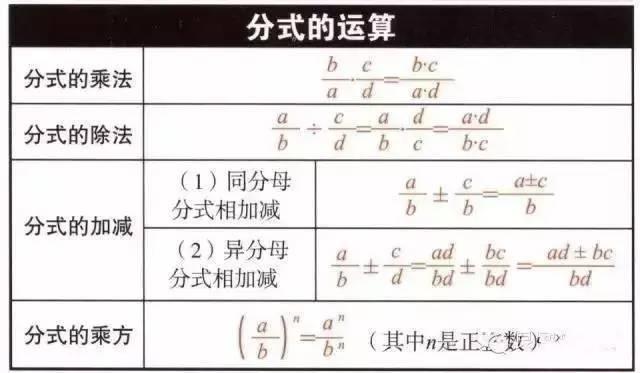 分式的运算
分式的乘法
b/a · c/d = b·c/a·d
分式的除法
a/b ÷ c/d = a/b · d/c = a·d/b·c
分式的加减
（1）同分母
分式相加减
a/b ± c/b = a±c/b
（2）异分母
分式相加减
a/b ± c/d = ad/bd ± bc/bd = ad ± bc/bd
分式的乘方
(a/b)ⁿ = aⁿ/bⁿ （其中n是正 数）